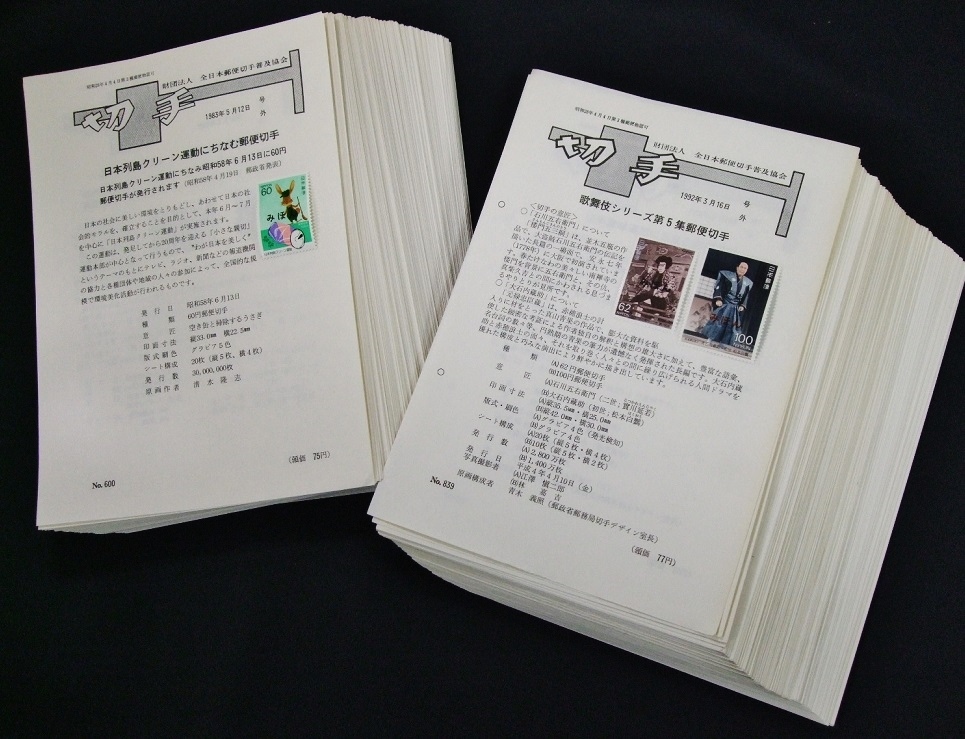 財団法人 全日本郵便切手普及協会
切手
1983年5月12日
号外
日本列島クリーン運動にちなむ郵便切手
日本列島クリーン運動にちなみ昭和58年6月13日に60円
郵便切手が発行されます(昭和58年4月19日 郵政省発表)
60
みほん
日本の社会に美しい環境をとりもどし、あわせて日本の社
会的モラルを、確立することを目的として、本年6月〜7月
を中心に「日本列島クリーン運動」が実施されます。
この運動は、発足してから20周年を迎える「小さな親切」
運動本部が中心となって行うもので、“わが日本を美しく”
というテーマのもとにテレビ、ラジオ、新聞などの報道機関
の協力と各種団体や地域の人々の参加によって、全国的な規
模で環境美化活動が行われるものです。
発行日 昭和58年6月13日
種類 60円郵便切手
意匠 空き缶と掃除するうさぎ
印面寸法 縦33.0mm 横22.5mm
版式刷色 グラビア5色
シート構成 20枚(縦5枚、横4枚)
発行数 30,000,000枚
原画作者 清水隆志
(頒価 75円)
No.600
財団法人 全日本郵便切手普及協会
切手
1992年3月16日
号外
歌舞伎シリーズ第5集郵便切手
<切手の意匠>
○「石川五右衛門」について
62
日本郵便
100
○「大石内蔵助」について
種類 (A)62円郵便切手
(B)100円郵便切手
意匠 (A)石川五右衛門(二世:實川延若)
(B)大石内蔵助(初世:松本白鸚)
印面寸法 (A)縦35.5mm・横25.0mm
(B)縦42.0mm・横30.0mm
版式・刷色 (A)グラビア4色(発光検知)
(B)グラビア4色
シート構成 (A)20枚(縦5枚・横4枚)
(B)10枚(縦5枚・横2枚)
発行数 (A)2,800万枚
(B)1,400万枚
発行日 平成4年4月10日(金)
写真撮影者 (A)江澤愼二郎
(B)林嘉吉
原画構成者 青木義照(郵政省郵務局切手デザイン室長)
(頒価 77円)
No.839